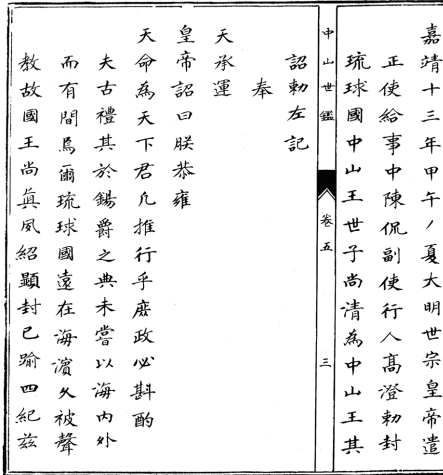 嘉靖十三年甲午ノ夏大明世宗皇帝遣
正使給事中陳侃副使行人高澄勅封
琉球國中山王世子尚清為中山王其
中山世鑑 卷五 三
詔勅左記
奉
天承運
皇帝詔曰朕恭雍
天命為天下君凡推行乎庶政必斟酌
夫古禮其於錫爵之典未嘗以海內外
而有間焉爾琉球國遠在海濱久被聲
教故國王尚真夙紹顯封已踰四紀茲